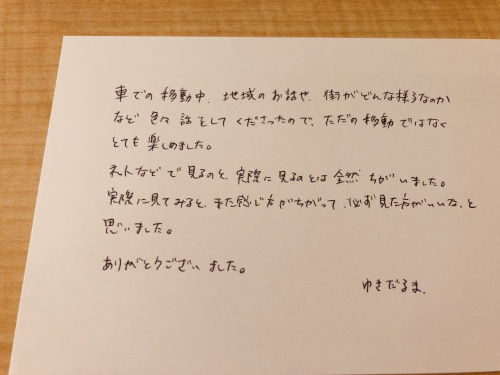 車での移動中、地域のお話や、街がどんな様子なのか
など色々話をしてくださったので、ただの移動ではなく
とても楽しめました。
ネットなどで見るのと、実際に見るのとは全然ちがいました。
実際に見てみると、また感じ方がちがって、必ず見た方がいいな、と
思いました。
ありがとうございました。
ゆきだるま.